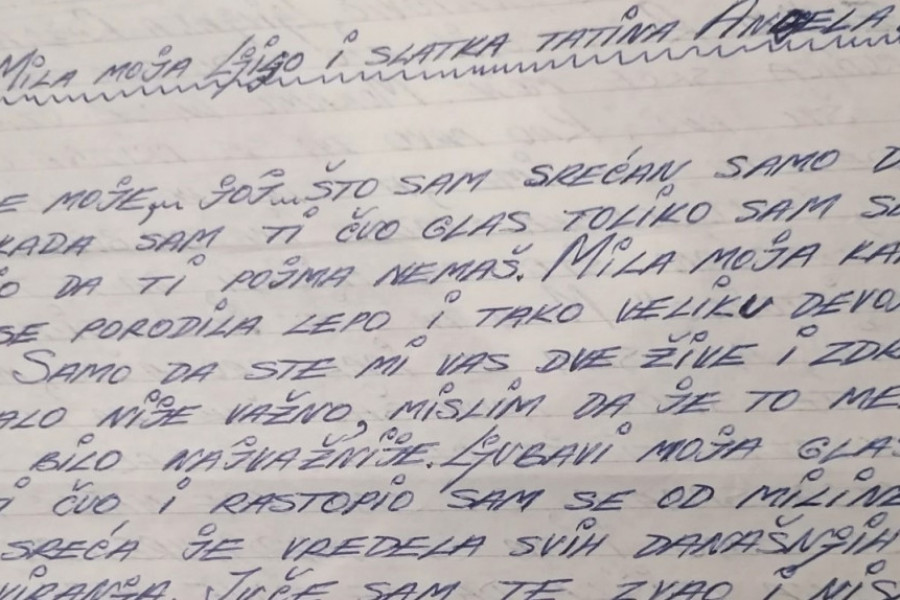 MILA MOJA LJIGO I SLATKA TATINA ANĐELA
E MOJE,,, JOJ,,, ŠTO SAM SREĆAN SAMO D
KADA SAM TI ČUO GLAS TOLIKO SAM S
O DA TI POJMA NEMAŠ. MILA MOJA KA
SE PORODILA LEPO I TAKO VELIKU DEVO
SAMO DA STE MI VAS DVE ŽIVE I ZD
ALO NIJE VAŽNO, MISLIM DA JE TO ME
BILO NAJVAŽNIJE. LJUBAVI MOJA GLA
I ČUO I RASTOPIO SAM SE OD MILINE
SREĆA JE VREDELA SVIH DANAŠNJIH
VIRANJA. JUČE SAM TE ZVAO I NIS